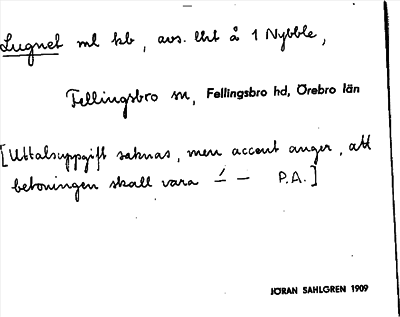 Lugnet ml kb, avs. lht å 1 Nybble,
Fellingsbro sn, Fellingsbro hd, Örebro län
[Uttalsuppgift saknas, men accent anger, att
betoningen skall vara –́ – P.A.]
JÖRAN SAHLGREN 1909